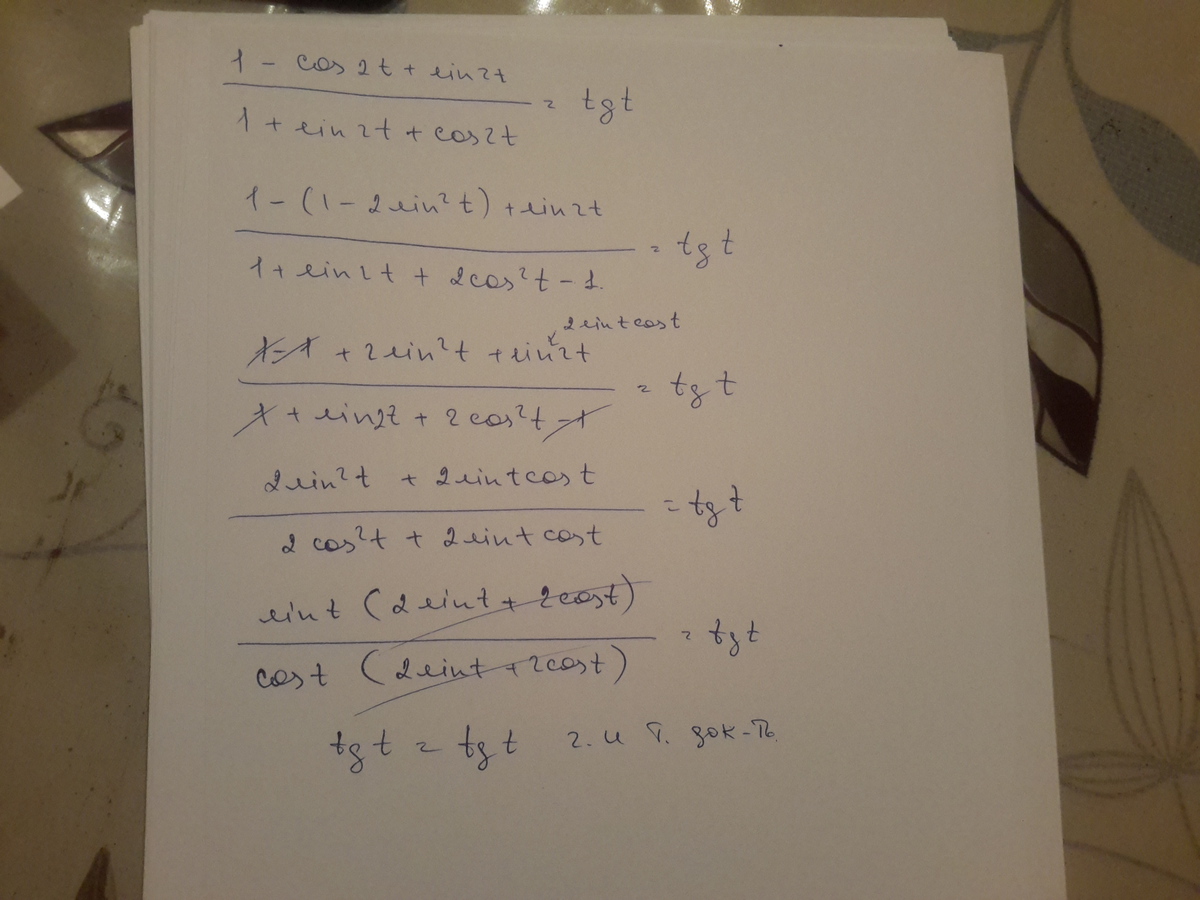 1 - cos 2t + sin 2t
= tg t
1 + sin 2t + cos 2t
1 - (1 - 2 sin² t) + sin 2t
= tg t
1 + sin 2t + 2cos² t - 1.
2 sin t cos t
1 - 1 + 2 sin² t + sin 2t
= tg t
1 + sin 2t + 2 cos² t - 1
2 sin² t + 2 sin t cos t
= tg t
2 cos² t + 2 sin t cos t
sin t (2 sin t + 2 cos t)
= tg t
cos t (2 sin t + 2 cos t)
tg t = tg t ч. и т. док-ть.